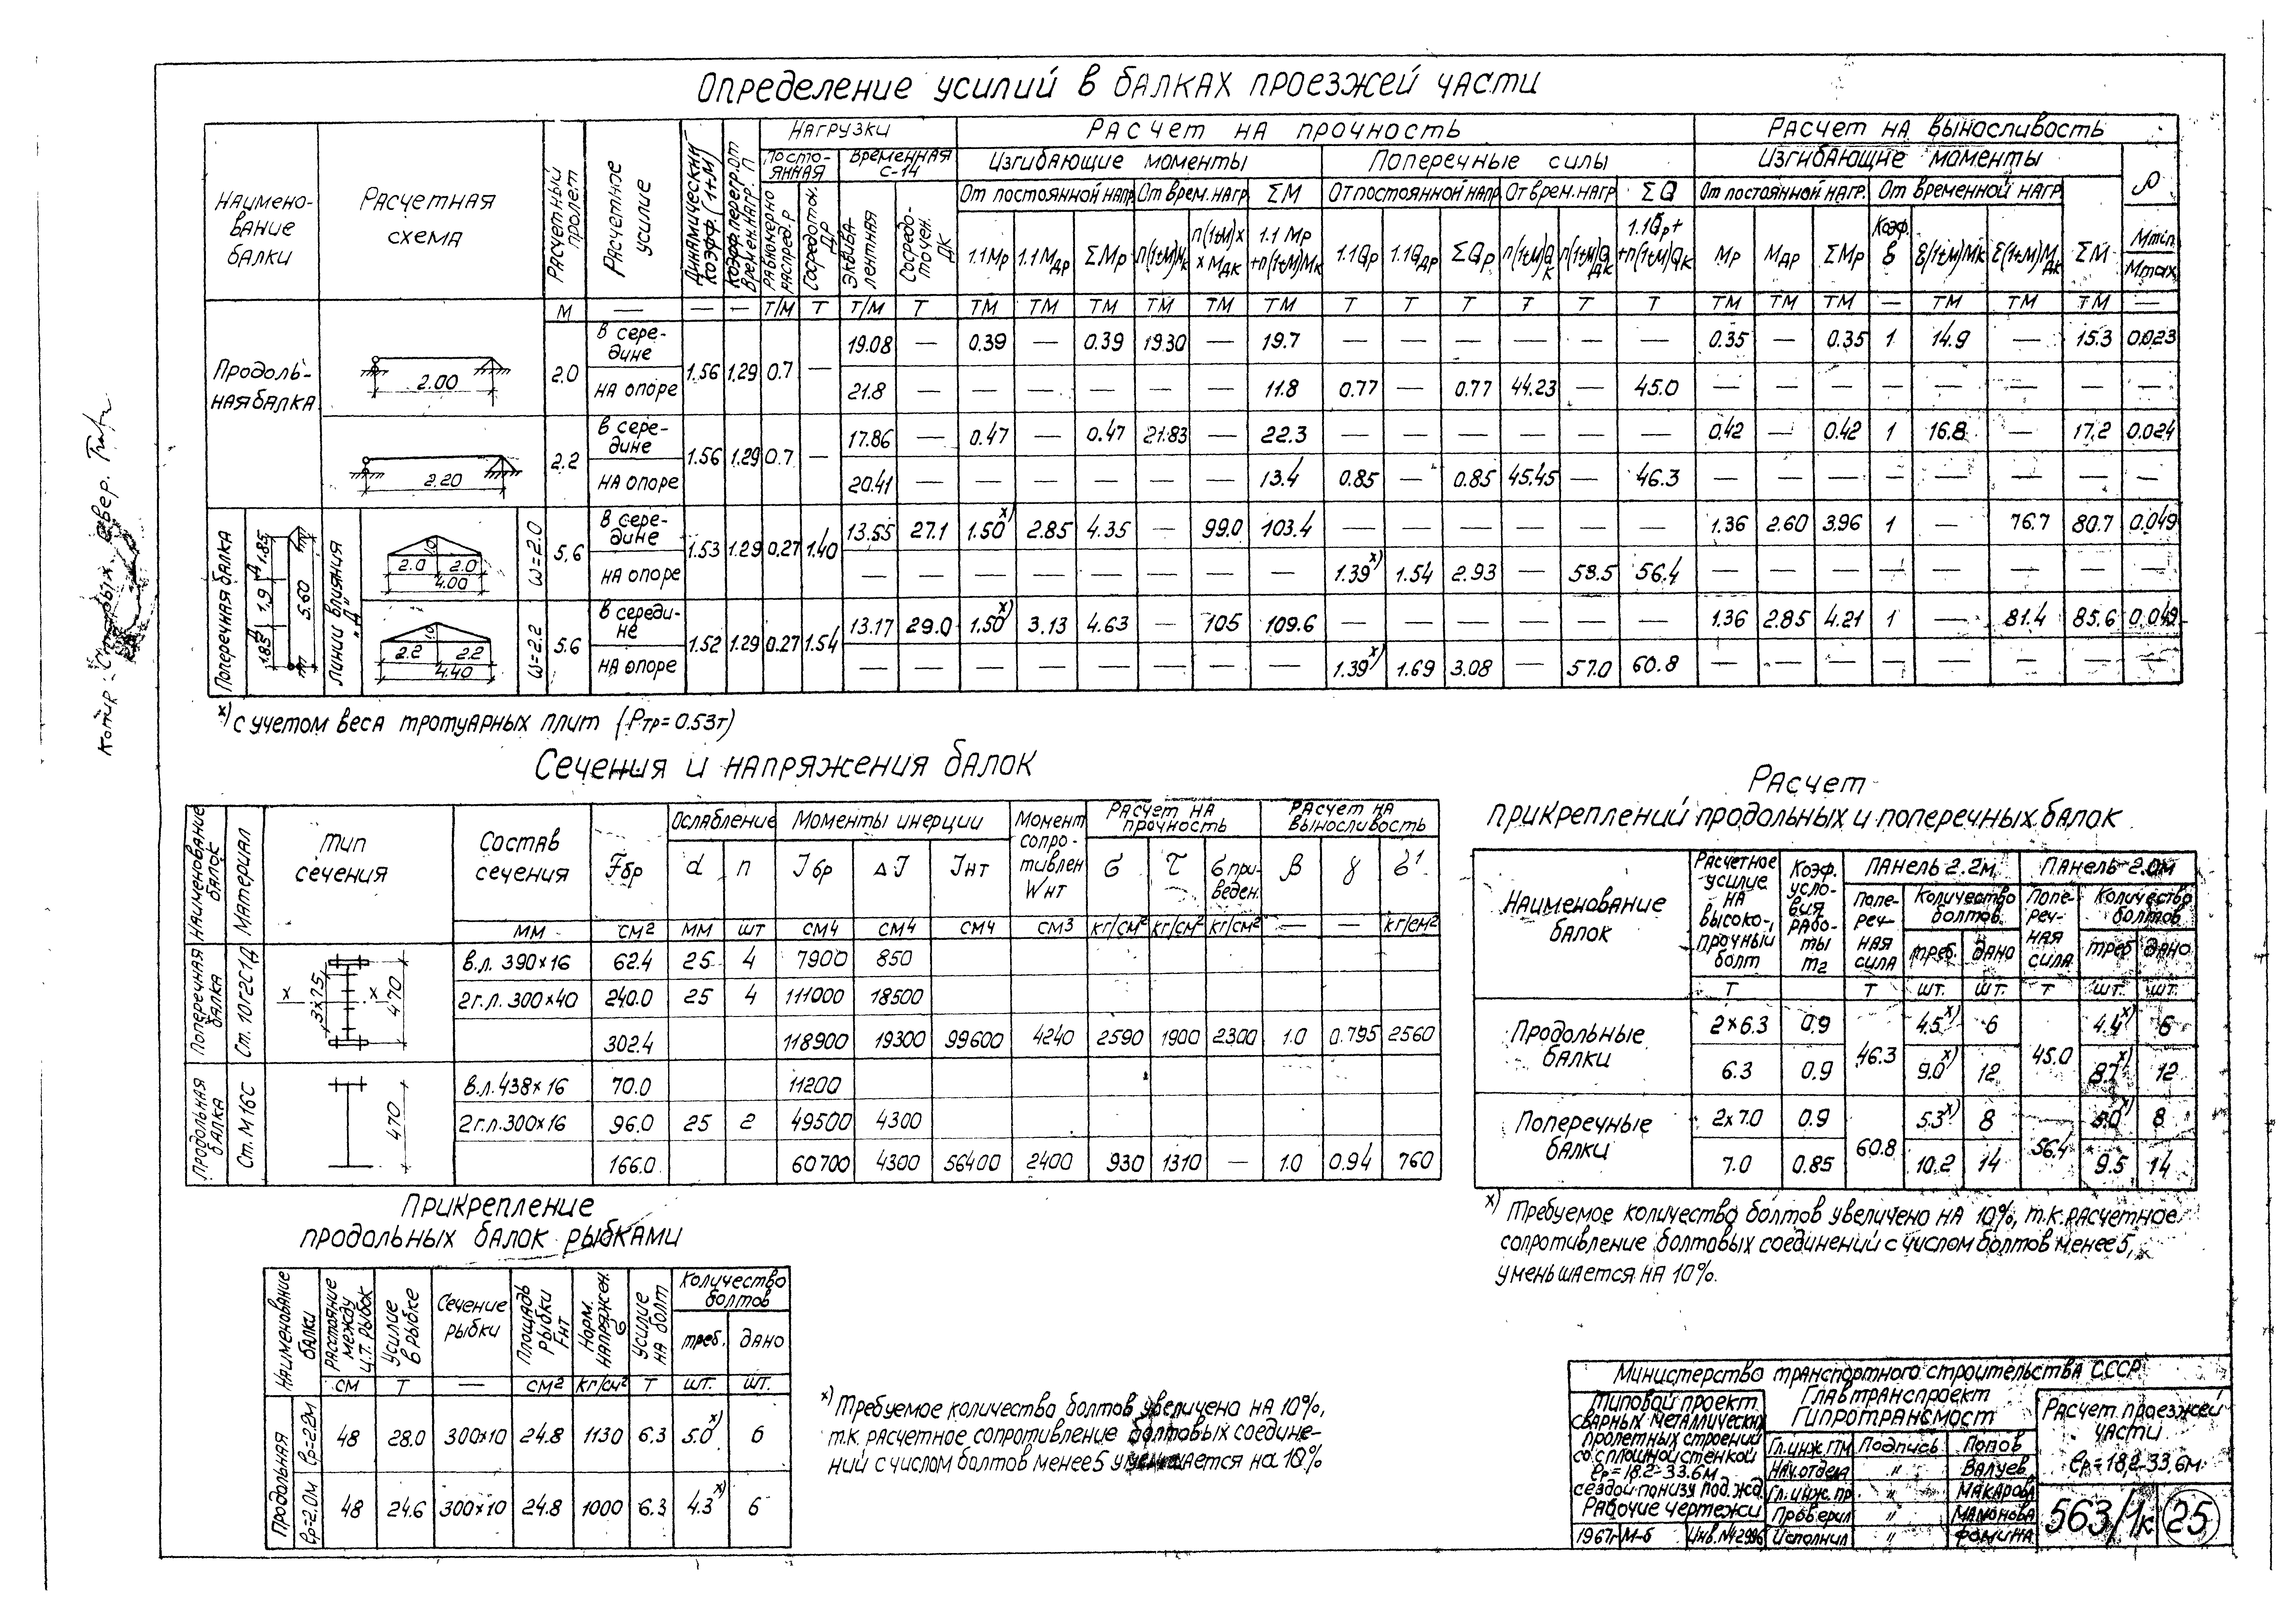 Определение усилий в балках проезжей части
Наимено-
вание
балки
Расчетная
схема
Расчетный
пролет
Расчетное
усилие
Динамический
коэфф. (1+М)
Коэф. перегр. от
времен. нагр. п
Нагрузки
Посто-
янная
Временная
С-14
Равномерно
распред. Р
Сосредоточ.
ДР
Эквива-
лентная
Сосредо-
точен.
ДК
Расчет на прочность
Изгибающие моменты
Поперечные силы
От постоянной нагр. От врем. нагр. ΣМ
От постоянной нагр От врем. нагр ΣQ
1.1Мр 1.1Мдр ΣМр п(1+М)Мк п(1+М)х х Мдк 1.1 Мр +п(1+М)Мк
1.1Qр 1.1Qдр ΣQр п(1+М)Qк п(1+М)Qдк 1.1Qр+ +п(1+М)Qк
Расчет на выносливость
Изгибающие моменты
От постоянной нагр. От временной нагр
Мр Мдр ΣМр Коэф. в Ɛ(1+М)Мк Ɛ(1+М)Мдк ΣМ
ρ
Мmin
Мmax
М — — — Т/М Т Т/М Т ТМ ТМ ТМ ТМ ТМ ТМ Т Т Т Т Т Т ТМ ТМ ТМ — ТМ ТМ ТМ —
Продоль-
ная балка
2.00
2.0 в сере-
дине 1.56 1.29 0.7 — 19.08 — 0.39 — 0.39 19.30 — 19.7 — — — — — — 0.35 — 0.35 1 14.9 — 15.3 0.023
на опоре 21.8 — — — — — — 11.8 0.77 — 0.77 44.23 — 45.0 — — — — — — — —
2.20
2.2 в сере-
дине 1.56 1.29 0.7 — 17.86 — 0.47 — 0.47 21.83 — 22.3 — — — — — — 0.42 — 0.42 1 16.8 — 17.2 0.024
на опоре 20.41 — — — — — — 13.4 0.85 — 0.85 45.45 — 46.3 — — — — — — — —
Поперечная балка
1.85 Д 1.9 Д 1.85
5.60
Линии влияния
"Д"
1.0
2.0 2.0
4.00
ω=2.0
5.6 в сере-
дине 1.53 1.29 0.27 1.40 13.55 27.1 1.50х) 2.85 4.35 — 99.0 103.4 — — — — — — 1.36 2.60 3.96 1 — 76.7 80.7 0.049
на опоре — — — — — — — — 1.39х) 1.54 2.93 — 53.5 56.4 — — — — — — — —
1.0
2.2 2.2
4.40
ω=2.2
5.6 в середи-
не 1.52 1.29 0.27 1.54 13.17 29.0 1.50х) 3.13 4.63 — 105 109.6 — — — — — — 1.36 2.85 4.21 1 — 81.4 85.6 0.049
на опоре — — — — — — — — 1.39х) 1.69 3.08 — 57.0 60.8 — — — — — — — —
х) с учетом веса тротуарных плит (Ртр=0.53т)
Сечения и напряжения балок
Наименование
балок
Материал
Тип
сечения
Состав
сечения
Fбр
Ослабление
d п
Моменты инерции
Jбр ΔJ Jнт
Момент
сопро-
тивлен
Wнт
Расчет на
прочность
σ τ σ при-
веден.
Расчет на
выносливость
β γ σ¹
мм см2 мм шт см4 см4 см4 см3 кг/см2 кг/см2 кг/см2 — — кг/см2
Поперечная
балка
Ст. 10Г2С1Д
х х
3×75
470
в.л. 390×16 62.4 25 4 7900 850
2г.л. 300×40 240.0 25 4 111000 18500
302.4 118900 19300 99600 4240 2590 1900 2300 1.0 0.795 2560
Продольная
балка
Ст. М16С
470
в.л. 438×16 70.0 11200
2г.л. 300×16 96.0 25 2 49500 4300
166.0 60700 4300 56400 2400 930 1310 — 1.0 0.94 760
Расчет
прикреплений продольных и поперечных балок
Наименование
балок
Расчетное
усилие
на
высоко-
прочный
болт
Коэф.
усло-
вия
рабо-
ты
m2
Панель 2.2м
Панель 2.0м
Попе-
реч-
ная
сила
Количество
болтов
треб. дано
Попе-
реч-
ная
сила
Количество
болтов
треб дано
Т Т шт. шт. Т шт. шт.
Продольные
балки
2×6.3 0.9 46.3 4.5х) 6 45.0 4.4х) 6
6.3 0.9 9.0х) 12 8.7х) 12
Поперечные
балки
2×7.0 0.9 60.8 5.3х) 8 56.4 5.0х) 8
7.0 0.85 10.2 14 9.5 14
х) Требуемое количество болтов увеличено на 10%, т.к. расчетное
сопротивление болтовых соединений с числом болтов менее 5,
уменьшается на 10%.
Прикрепление
продольных балок рыбками
Наименование
балки
Расстояние
между
ц.т. рыбок
Усилие
в рыбке
Сечение
рыбки
Площадь
рыбки
Fнт
Норм.
напряжен.
σ
Усилие
на болт
Количество
болтов
треб. дано
см Т — см2 кг/см2 Т шт. шт.
Продольная
ℓр=2.2м 48 28.0 300×10 24.8 1130 6.3 5.0х) 6
ℓр=2.0м 48 24.6 300×10 24.8 1000 6.3 4.3х) 6
х) Требуемое количество болтов увеличено на 10%,
т.к. расчетное сопротивление болтовых соедине-
ний с числом болтов менее 5 уменьшается на 10%
Министерство транспортного строительства СССР
Типовой проект
сварных металлических
пролетных строений
со сплошной стенкой
ℓр=18.2-33.6м
с ездой понизу под ж.д.
Рабочие чертежи
1967г М-б Инв.№
Главтранспроект
Гипротрансмост
Гл. инж. ГТМ Подпись Попов
Нач. отдела " Валуев
Гл. инж. пр. " Макарова
Проверил " Мамонова
Исполнил " Фомина
Расчет проезжей
части
ℓр=18,2-33,6м
563/1к 25